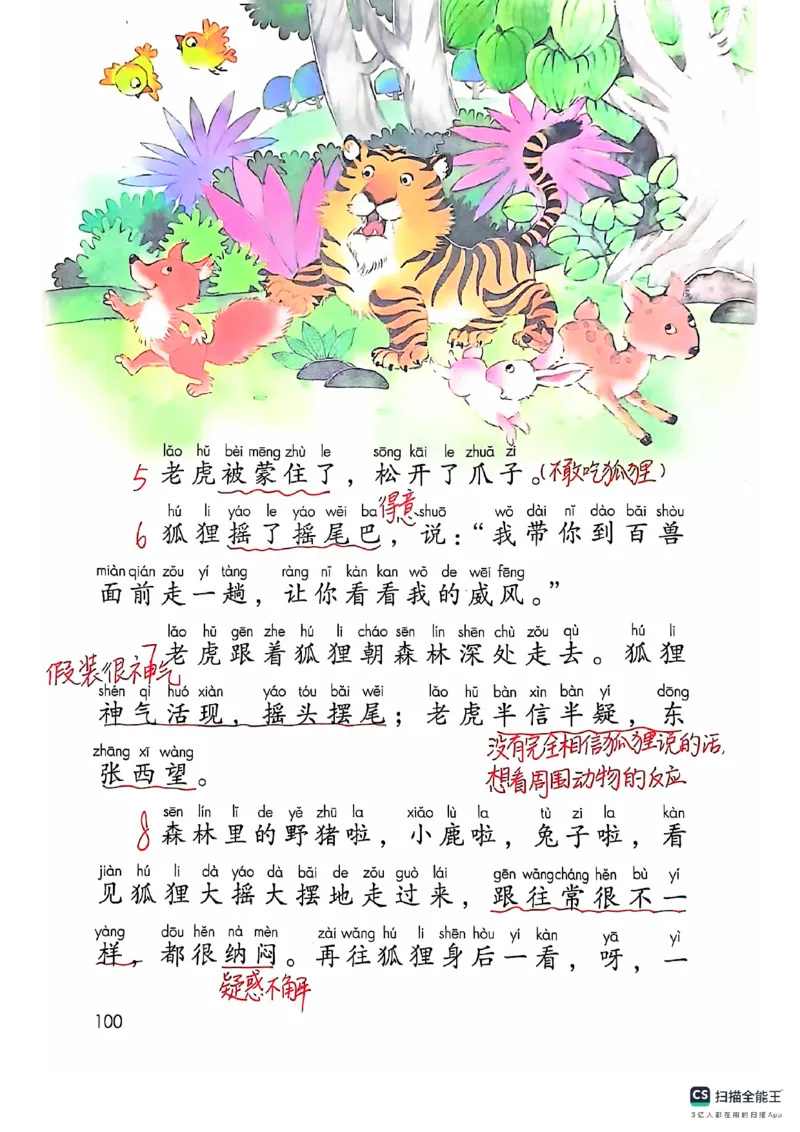 lǎo hǔ bèi mēng zhù le sōng kāi le zhuǎ zi
5 老虎被蒙住了，松开了爪子。(不敢吃狐狸)
得意
hú li yáo le yáo wěi ba shuō wǒ dài nǐ dào bǎi shòu
6 狐狸摇了摇尾巴，说：“我带你到百兽
miàn qián zǒu yí tàng ràng nǐ kàn kan wǒ de wēi fēng
面前走一趟，让你看看我的威风。”
lǎo hǔ gēn zhe hú li cháo sēn lín shēn chù zǒu qù hú li
7 老虎跟着狐狸朝森林深处走去。狐狸
假装很神气
shén qì huó xiàn yáo tóu bǎi wěi lǎo hǔ bàn xìn bàn yí dōng
神气活现，摇头摆尾；老虎半信半疑，东
没有完全相信狐狸说的话，
zhāng xī wàng
张西望。
想看周围动物的反应
sēn lín lǐ de yě zhū la xiǎo lù la tù zi la kàn
8 森林里的野猪啦，小鹿啦，兔子啦，看
jiàn hú li dà yáo dà bǎi de zǒu guò lái gēn wǎng cháng hěn bù yí
见狐狸大摇大摆地走过来，跟往常很不一
yàng dōu hěn nà mèn zài wǎng hú li shēn hòu yí kàn yā yì
样，都很纳闷。再往狐狸身后一看，呀，一
疑惑不解
100
CS 扫描全能王
3亿人都在用的扫描App